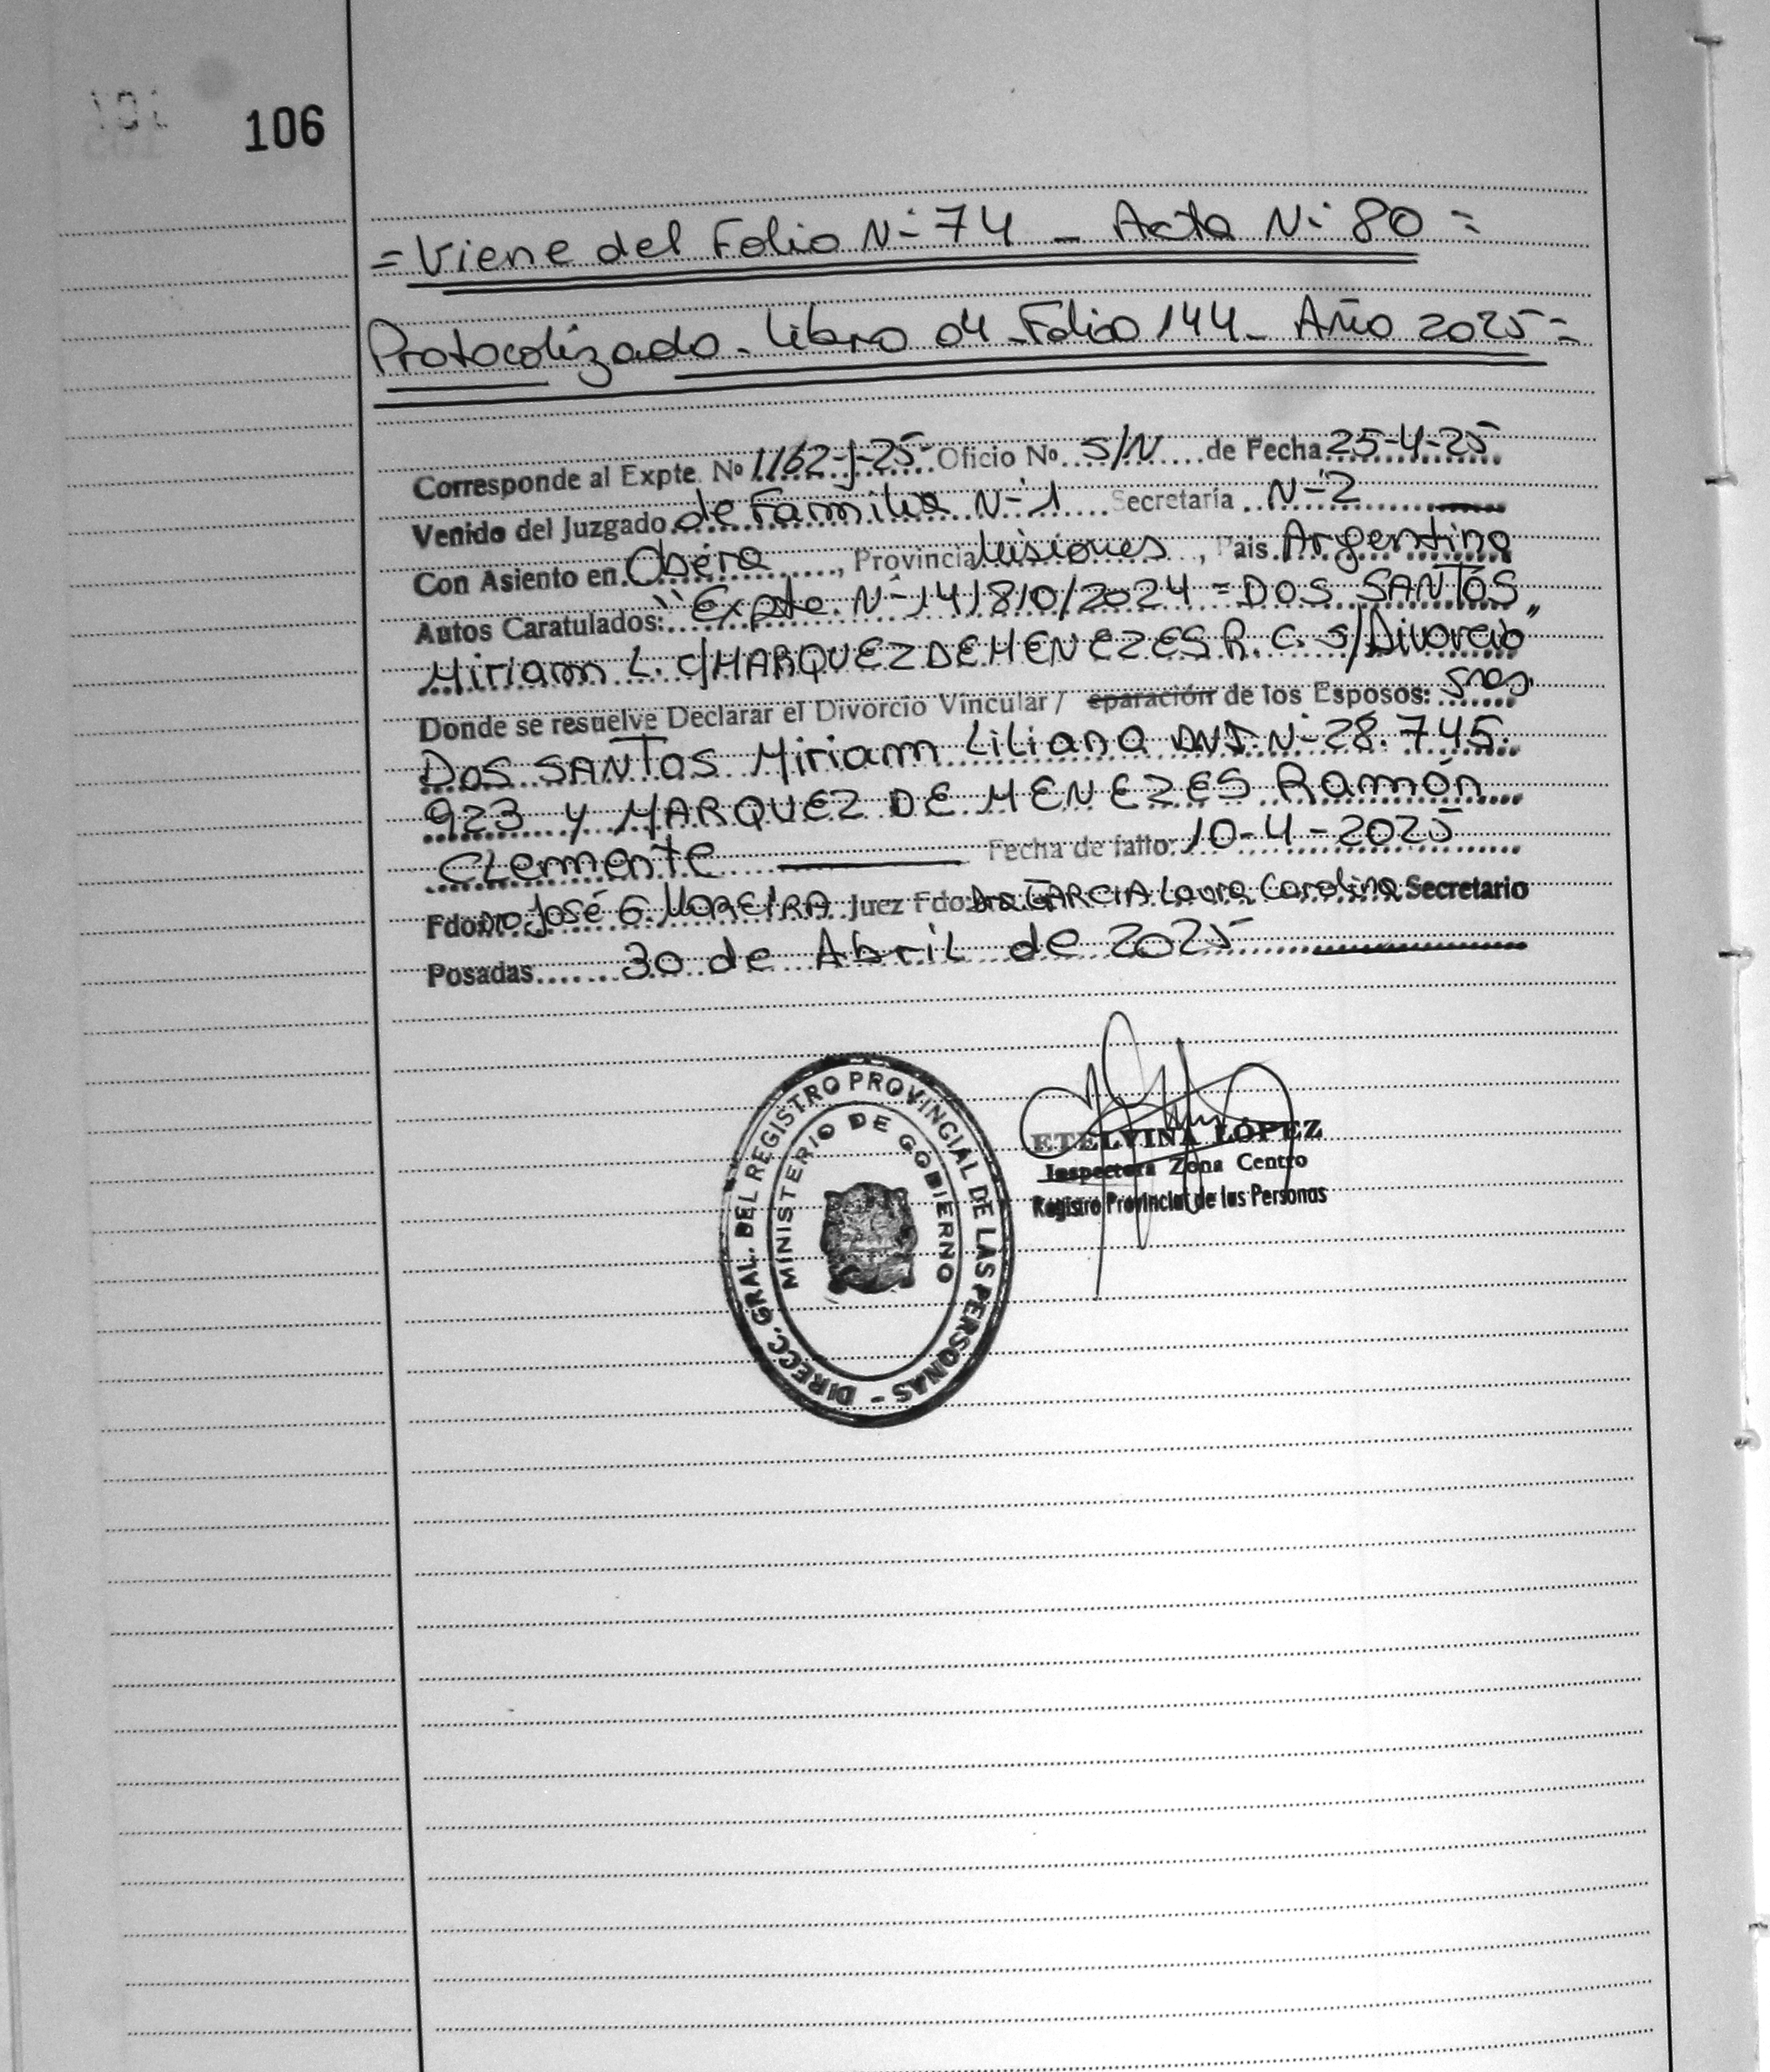 106
= Viene del Folio N- 74 - Acta N- 80 =
Protocolizado - Libro 04 - Folio 144 - Año 2025 =
Corresponde al Expte. Nº 1162-J-25- Oficio Nº S/N de Fecha 25-4-25
Venido del Juzgado de Familia N-1 Secretaría N-2
Con Asiento en Oberá, Provincia Misiones, Pais Argentina
Autos Caratulados: "Expte. N-141810/2024 = DOS SANTOS
Miriam L. c/ MARQUEZ DE MENEZES R. C. s/Divorcio"
Donde se resuelve Declarar el Divorcio Vincular / eparación de los Esposos: Sres.
DOS SANTOS Miriam Liliana DNI. N-28.745.
923 y MARQUEZ DE MENEZES Ramón
Clemente Fecha de fallo: 10-4-2025
Fdo: Dr. José G. MOREIRA Juez Fdo: Dra GARCIA Laura Carolina Secretario
Posadas 30 de Abril de 2025
DIRECC. GRAL. DEL REGISTRO PROVINCIAL DE LAS PERSONAS -
MINISTERIO DE GOBIERNO
ETELVINA LÓPEZ
Inspectora Zona Centro
Registro Provincial de las Personas